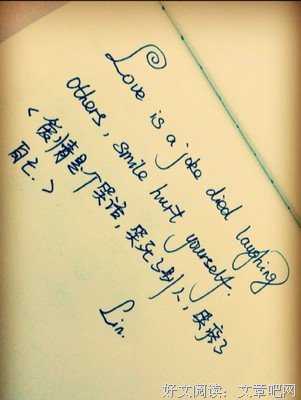 Love is a joke died laughing
others, smile hurt yourself.
<爱情是个笑话,笑死了别人,笑疼了
自己.>
Lin.
好文阅读:文章吧网